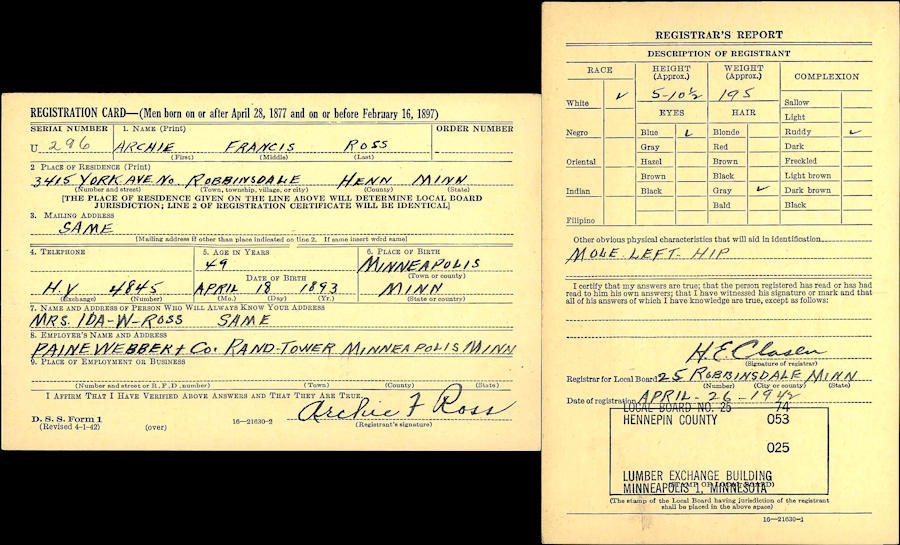 REGISTRATION CARD—(Men born on or after April 28, 1877 and on or before February 16, 1897)
SERIAL NUMBER 1. NAME (Print) ORDER NUMBER
U 296 ARCHIE FRANCIS ROSS
(First) (Middle) (Last)
2 PLACE OF RESIDENCE (Print)
3415 YORK AVE NO. ROBBINSDALE HENN MINN
(Number and street) (Town, township, village, or city) (County) (State)
[THE PLACE OF RESIDENCE GIVEN ON THE LINE ABOVE WILL DETERMINE LOCAL BOARD
JURISDICTION; LINE 2 OF REGISTRATION CERTIFICATE WILL BE IDENTICAL]
3. MAILING ADDRESS
SAME
[Mailing address if other than place indicated on line 2. If same insert word same]
4. TELEPHONE 5. AGE IN YEARS 6. PLACE OF BIRTH
49 MINNEAPOLIS
DATE OF BIRTH (Town or county)
H.Y 4845 APRIL 18 1893 MINN
(Exchange) (Number) (Mo.) (Day) (Yr.) (State or country)
7. NAME AND ADDRESS OF PERSON WHO WILL ALWAYS KNOW YOUR ADDRESS
MRS. IDA-W-ROSS SAME
8. EMPLOYER'S NAME AND ADDRESS
PAINE WEBBER + CO. RAND-TOWER MINNEAPOLIS MINN
9. PLACE OF EMPLOYMENT OR BUSINESS
(Number and street or R.F.D. number) (Town) (County) (State)
I AFFIRM THAT I HAVE VERIFIED ABOVE ANSWERS AND THAT THEY ARE TRUE.
Archie F Ross
D. S. S. Form 1
(Revised 4-1-42) (over) 16—21630-2 (Registrant's signature)
REGISTRAR'S REPORT
DESCRIPTION OF REGISTRANT
RACE HEIGHT (Approx.) WEIGHT (Approx.) COMPLEXION
White ✓ 5-10½ 195 Sallow
EYES HAIR Light
Negro Blue ✓ Blonde Ruddy ✓
Gray Red Dark
Oriental Hazel Brown Freckled
Brown Black Light brown
Indian Black Gray ✓ Dark brown
Bald Black
Filipino
Other obvious physical characteristics that will aid in identification
MOLE-LEFT-HIP
I certify that my answers are true; that the person registered has read or has had
read to him his own answers; that I have witnessed his signature or mark and that
all of his answers of which I have knowledge are true, except as follows:
H.E. Clasen
(Signature of registrar)
Registrar for Local Board 25 ROBBINSDALE MINN
(Number) (City or county) (State)
Date of registration APRIL-26-1942
LOCAL BOARD NO. 25 74
HENNEPIN COUNTY 053
025
LUMBER EXCHANGE BUILDING
(STAMP OF LOCAL BOARD)
MINNEAPOLIS 1, MINNESOTA
(The stamp of the Local Board having jurisdiction of the registrant
shall be placed in the above space)
16—21630-1